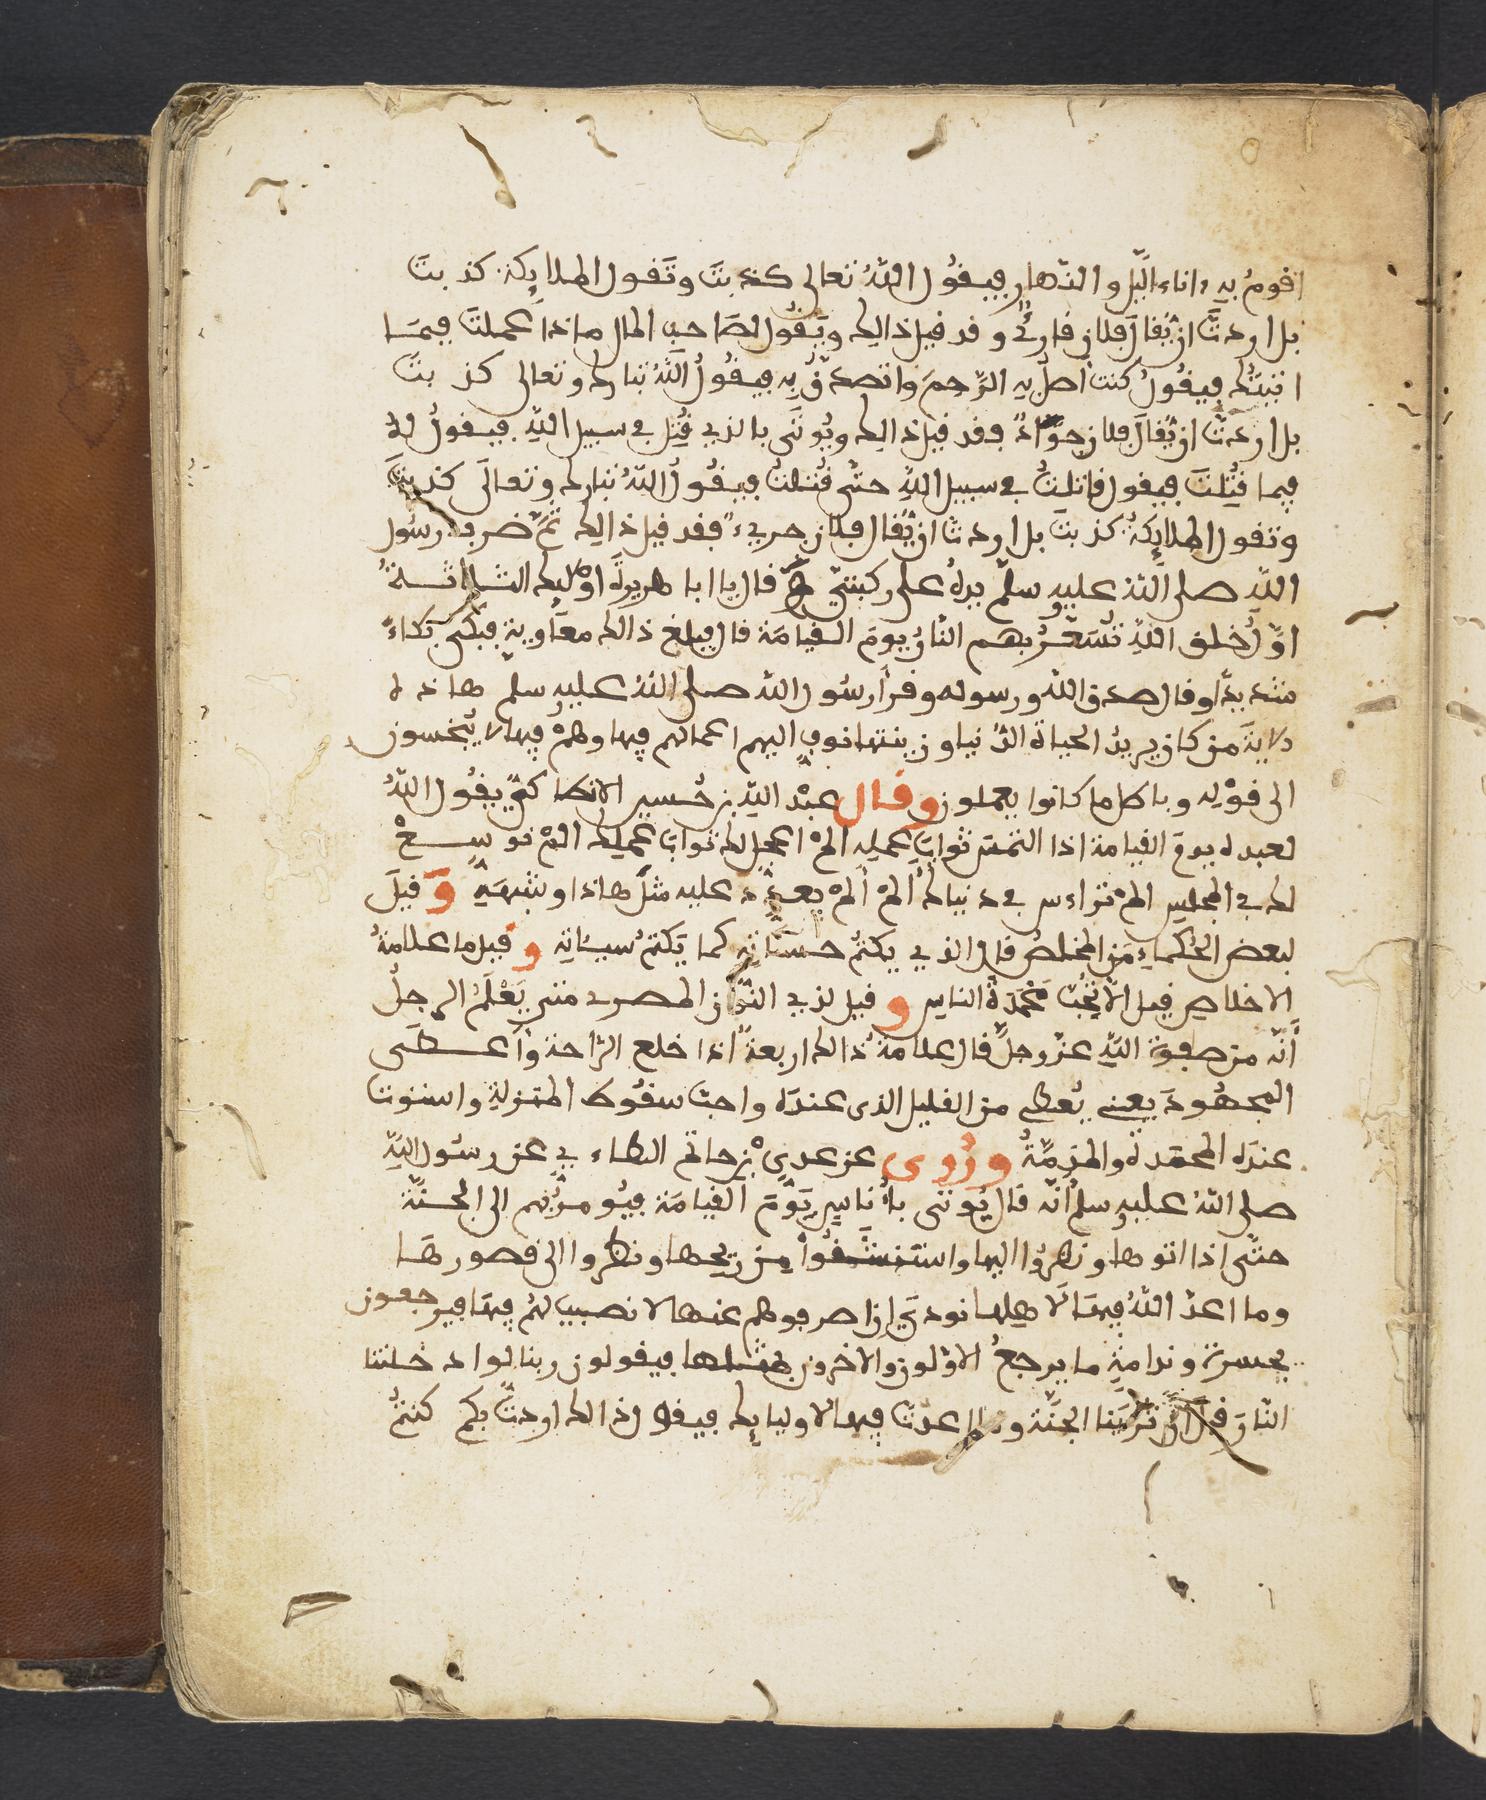 اقومُ بهِ ءاناء الّيل والنّهار فيقُول اللّهُ تعالى كذبتَ وتَقول الملايكة كذبتَ
بل اردتَّ ان يُقال فلان قارئٌ وقد قيل ذالك ويَقُول لصَاحب المال ماذا عملتَ فيمَا
اتيتُك فيقُولُ كنت أصل به الرَّحِمَ واتصدّقُ به فيقُولُ اللّهُ تبارك وتعالى كذبتَ
بل اردتَّ ان يُقالَ فلان جوَّادٌ فقد قيل ذالك ويُوتَى بالذي قُتِل في سبيل اللّهِ فيقولُ لهُ
فيما قُتِلتَ فيقول قاتلتُ في سبيل اللّهِ حتّى قُتلتُ فيقُولُ اللّهُ تبارك وتعالَى كذبتَ
وتقول الملايكةُ كذبتَ بل اردتَ ان يُقال فلان جريءٌ فقد قيل ذالك ثمّ ضرب رسُول
اللّه صلى اللّه عليه وسلّم يدهُ على ركبتيّ قال يا ابا هريرةَ اوْليك الثلاثةُ
اوّلُ خلق اللّهِ تُسَعّرُ بهم النّارُ يومَ القيامَة قال فبلغ ذالك معَاوية فبكَى بكاءً
شديدًا وقال صدق اللّه ورسوله وقرأ رسُول اللّه صلى اللّهُ عليه وسلم هاذه
الايةَ من كان يريدُ الحياة الدُّنيا وزينتها نوف اليهم اعمالهم فيها وهمْ فيها لا يُبْخسون
الى قوْله وباطل ما كانوا يعملون وقال عبْد اللّه بن حُسين الانطاكيّ يقُول اللّهُ
لعبده يومَ القيامة اذا التمسَ ثوابَ عملِه المْ اعجّل لك ثوابَ عملِك المْ نوسعْ
لك في المجلس المْ تراءس في دنياك ألمْ ألمْ يعدّد عليه مثل هاذا وشبهَهِ وَقيلَ
لبعض الحُكماءِ مَن المخلصُ قال الذي يكتمُ حسنَاتِه كما يَكتمُ سيئاتِه وقيل ما علامةُ
الاخلاص قيل الّا تحُبّ مَحْمَدةَ الناس وقيل لذي النّون المصري متى يَعْلَمُ الرجلُ
أنّه من صفوة اللّهِ عزّ وجلّ قال علامةُ ذالك اربعةٌ اذا خلع الرّاحة وأعطَى
المجهُودَ يعني يُعطي من القليل الذى عندَه واحبَّ سقُوطَ المنزلةِ واستوت
عندَه المحمَدةُ والمذمّةُ ورُوى عن عديّ بْن حاتم الطاءي عن رسُول اللّهِ
صلى اللّهُ عليه وسلم أنّه قال يُوتَى بأُناسٍ يَوْمَ القيامَة فيُومرُ بهم الى الجنّةِ
حتَّى اذا اتوها ونظرُوا اليها واستنشَقُوا من ريحها ونظروا الى قصورهَا
وما اعدّ اللّهُ فيهَا لَاهِلها نودي إن اصرفوهم عنها لا نصيبَ لهُم فيهَا فيرجعون
بحسرة وندامةٍ ما يرجعُ الاوّلون والاخرون بمثلها فيقولون ربنا لو ادخلتنا
النّارَ قبلَ أن تُرِيَنا الجنَّة وما اعددتَ فيها لاوليايِك فيقول ذالك اردتُّ بكم كنتمْ